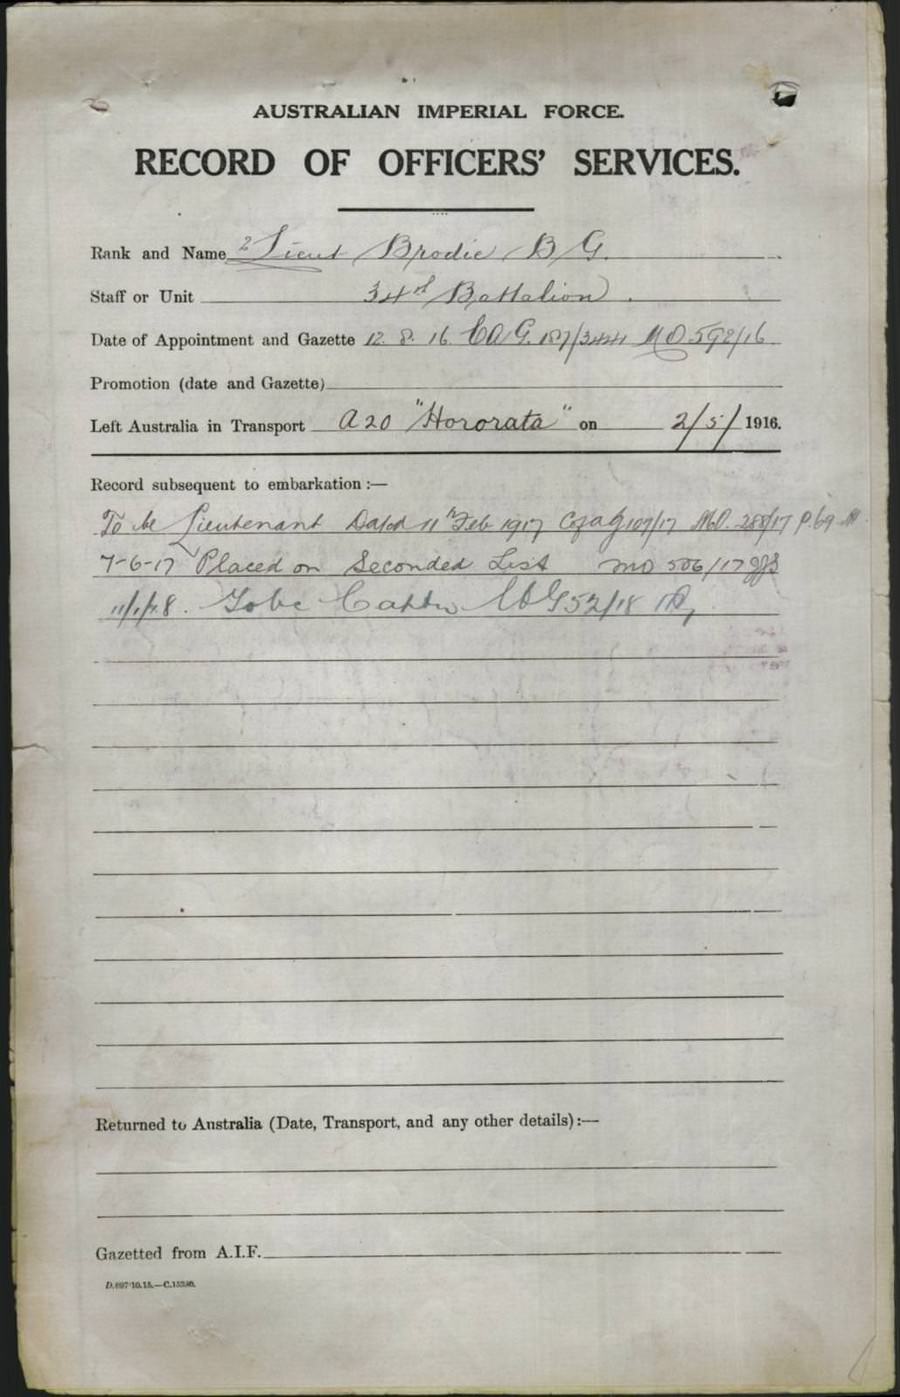 AUSTRALIAN IMPERIAL FORCE.
RECORD OF OFFICERS' SERVICES.
Rank and Name 2 Lieut Brodie B G.
Staff or Unit 34th Battalion.
Date of Appointment and Gazette 12. 8. 16. C A G. 187/3441 MO 592/16
Promotion (date and Gazette)
Left Australia in Transport A20 "Hororata" on 2/5/1916.
Record subsequent to embarkation :—
To be Lieutenant Dated 11th Feb 1917 C of A G 107/17 MO. 288/17 P. 69
7-6-17 Placed on Seconded List MO 506/17
11/1/18. To be Captn CAG 52/18
Returned to Australia (Date, Transport, and any other details) :—
Gazetted from A.I.F.
D.697/10.15.—C.15290.